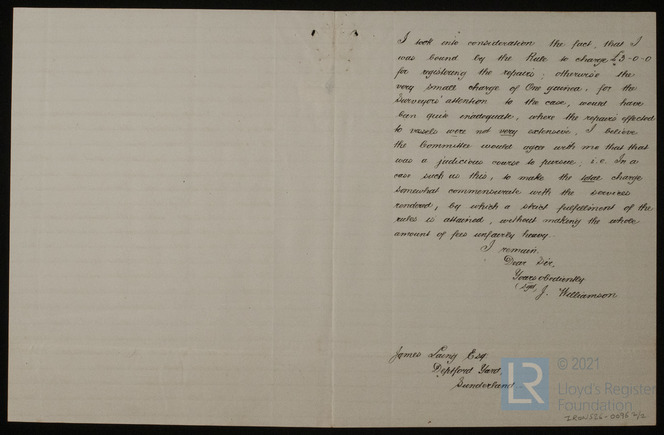 I took into consideration the fact, that I
was bound by the Rule to charge £3-0-0
for registering the repairs; otherwise the
very small charge of One guinea, for the
Surveyors' attention to the case, would have
been quite inadequate, where the repairs effected
to vessels were not very extensive. I believe
the Committee would agree with me that that
was a judicious course to pursue; i.e. In a
case such as this, to make the total charge
somewhat commensurate with the services
rendered, by which a strict fulfillment of the
rules is attained, without making the whole
amount of fees unfairly heavy.
I remain,
Dear Sir,
Yours obediently
(sgd) J. Williamson
James Laing Esq
Deptford Yard,
Sunderland
© 2021
LR
Lloyd's Register
Foundation
IRON526-0096 2/2